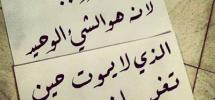 لانه هو الشيء الوحيد
الذي لا يموت حين